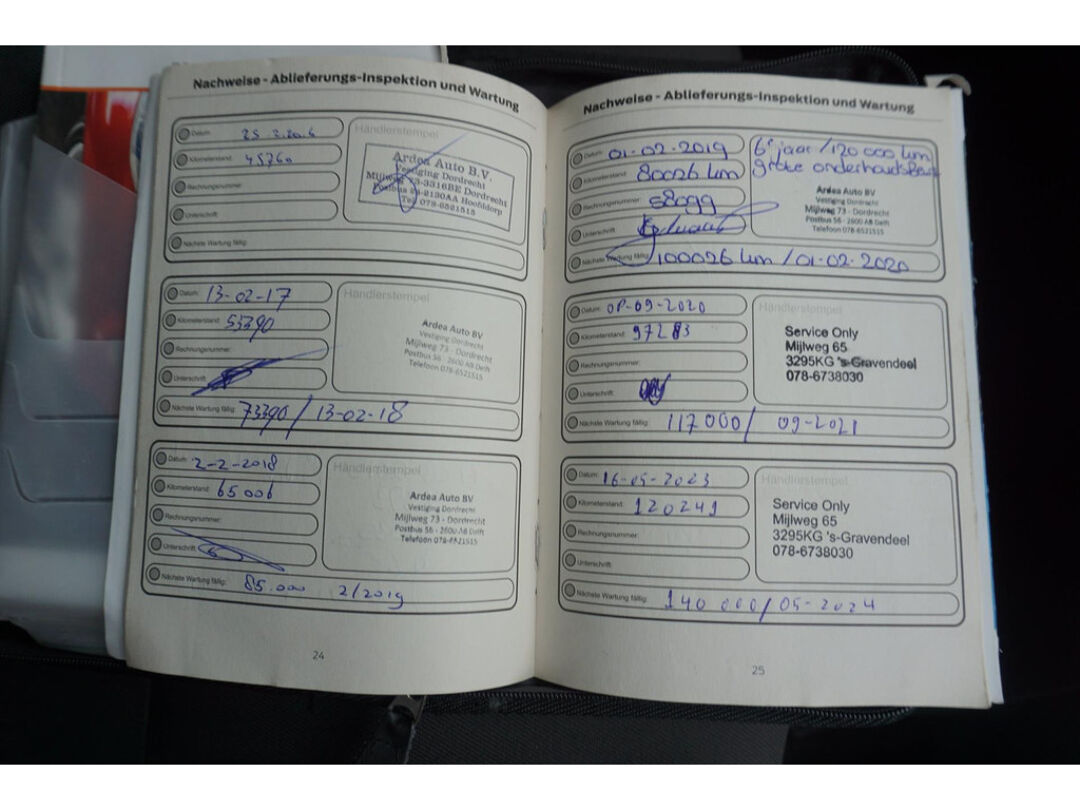 Nachweise - Ablieferungs-Inspektion und Wartung
Datum: 25.2.2016
Kilometerstand: 45760
Rechnungsnummer:
Unterschrift:
Nächste Wartung fällig:
Händlerstempel
Ardea Auto B.V.
Vestiging Dordrecht
Mijlweg 73-3316BE Dordrecht
Postbus 2130AA Hoofddorp
Tel. 078-6521515
Datum: 13-02-17
Kilometerstand: 53390
Rechnungsnummer:
Unterschrift:
Nächste Wartung fällig: 73390 / 13-02-18
Händlerstempel
Ardea Auto BV
Vestiging Dordrecht
Mijlweg 73 - Dordrecht
Postbus 56 - 2600 AB Delft
Telefoon 078-6521515
Datum: 2-2-2018
Kilometerstand: 65006
Rechnungsnummer:
Unterschrift:
Nächste Wartung fällig: 85.000 2/2019
Händlerstempel
Ardea Auto BV
Vestiging Dordrecht
Mijlweg 73 - Dordrecht
Postbus 56 - 2600 AB Delft
Telefoon 078-6521515
24
Nachweise - Ablieferungs-Inspektion und Wartung
Datum: 01-02-2019
Kilometerstand: 80026 km
Rechnungsnummer: 58099
Unterschrift:
Nächste Wartung fällig: 100026 km / 01-02-2020
6e jaar / 120 000 km
grote onderhoudsbeurt
Ardea Auto BV
Vestiging Dordrecht
Mijlweg 73 - Dordrecht
Postbus 56 - 2600 AB Delft
Telefoon 078-6521515
Datum: 08-09-2020
Kilometerstand: 97283
Rechnungsnummer:
Unterschrift:
Nächste Wartung fällig: 117000 / 09-2021
Händlerstempel
Service Only
Mijlweg 65
3295KG 's-Gravendeel
078-6738030
Datum: 16-05-2023
Kilometerstand: 120241
Rechnungsnummer:
Unterschrift:
Nächste Wartung fällig: 140 000 / 05-2024
Händlerstempel
Service Only
Mijlweg 65
3295KG 's-Gravendeel
078-6738030
25